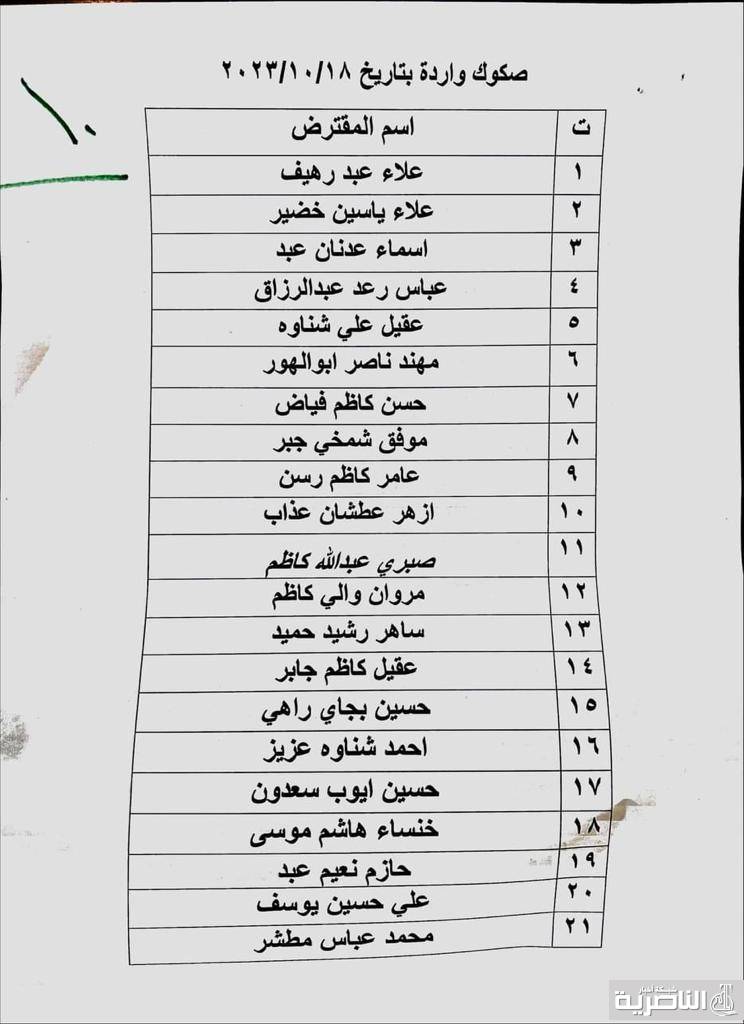 صكوك واردة بتاريخ ٢٠٢٣/١٠/١٨
١٠
ت اسم المقترض
١ علاء عبد رهيف
٢ علاء ياسين خضير
٣ اسماء عدنان عبد
٤ عباس رعد عبدالرزاق
٥ عقيل علي شناوه
٦ مهند ناصر ابوالهور
٧ حسن كاظم فياض
٨ موفق شمخي جبر
٩ عامر كاظم رسن
١٠ ازهر عطشان عذاب
١١ صبري عبدالله كاظم
١٢ مروان والي كاظم
١٣ ساهر رشيد حميد
١٤ عقيل كاظم جابر
١٥ حسين بجاي راهي
١٦ احمد شناوه عزيز
١٧ حسين ايوب سعدون
١٨ خنساء هاشم موسى
١٩ حازم نعيم عبد
٢٠ علي حسين يوسف
٢١ محمد عباس مطشر
شبكة اخبار
الناصرية